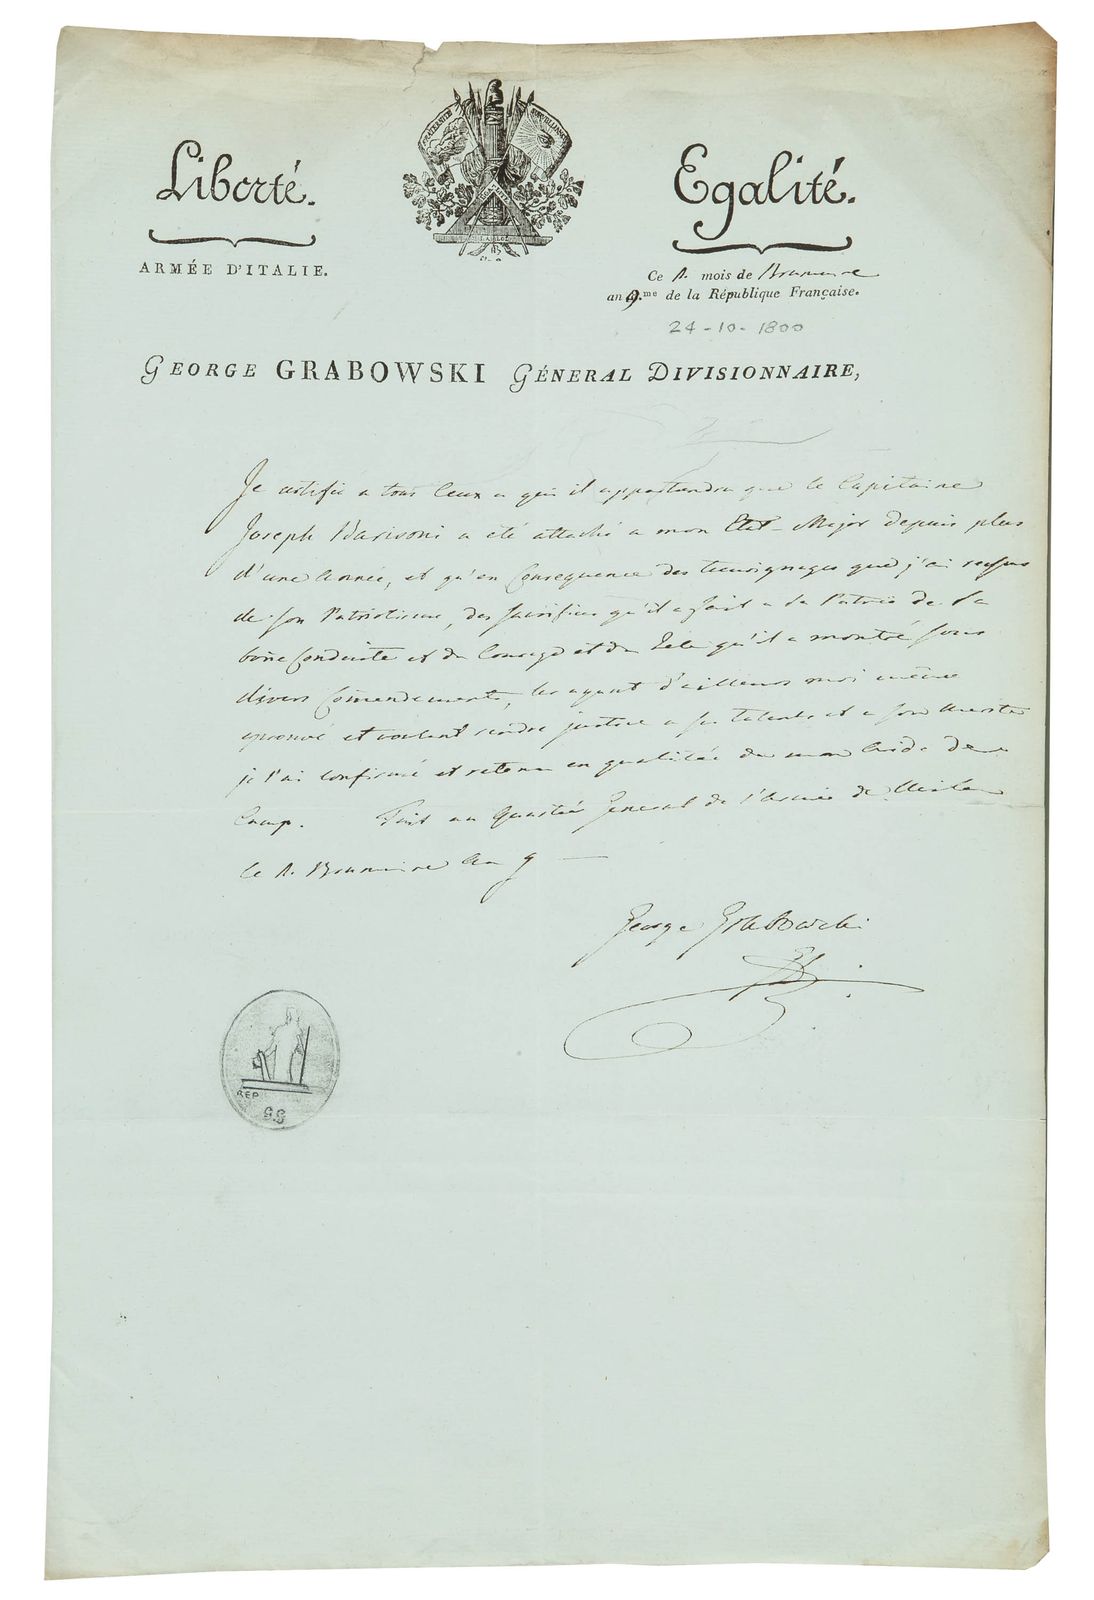 FRATERNITÉ
SURVEILLANCE
Liberté.
Egalité.
ARMÉE D'ITALIE.
Ce 2. mois de Brumaire
an 9.me de la République Française.
24-10-1800
GEORGE GRABOWSKI GÉNERAL DIVISIONNAIRE,
Je certifie a tous Ceux a qui il appartiendra que le Capitaine
Joseph Barisoni a été attaché a mon Etat-Major depuis plus
d'une Année, et qu'en Consequence des temoignages que j'ai reçus
de son Patriotisme, des sacrifices qu'il a fait a la Patrie de la
bone Conduite et du Courage et du Zele qu'il a montré sous
divers Comendements, les ayant d'ailleurs moi même
eprouvé et voulant rendre justice a ses talents et a son merite
je l'ai confirmé et retenu en qualitée de mon Aide de
Camp. Fait au Quartier General de l'Armée de Milan
Ce 2. Brumaire An 9
George Grabowski
REP
GG